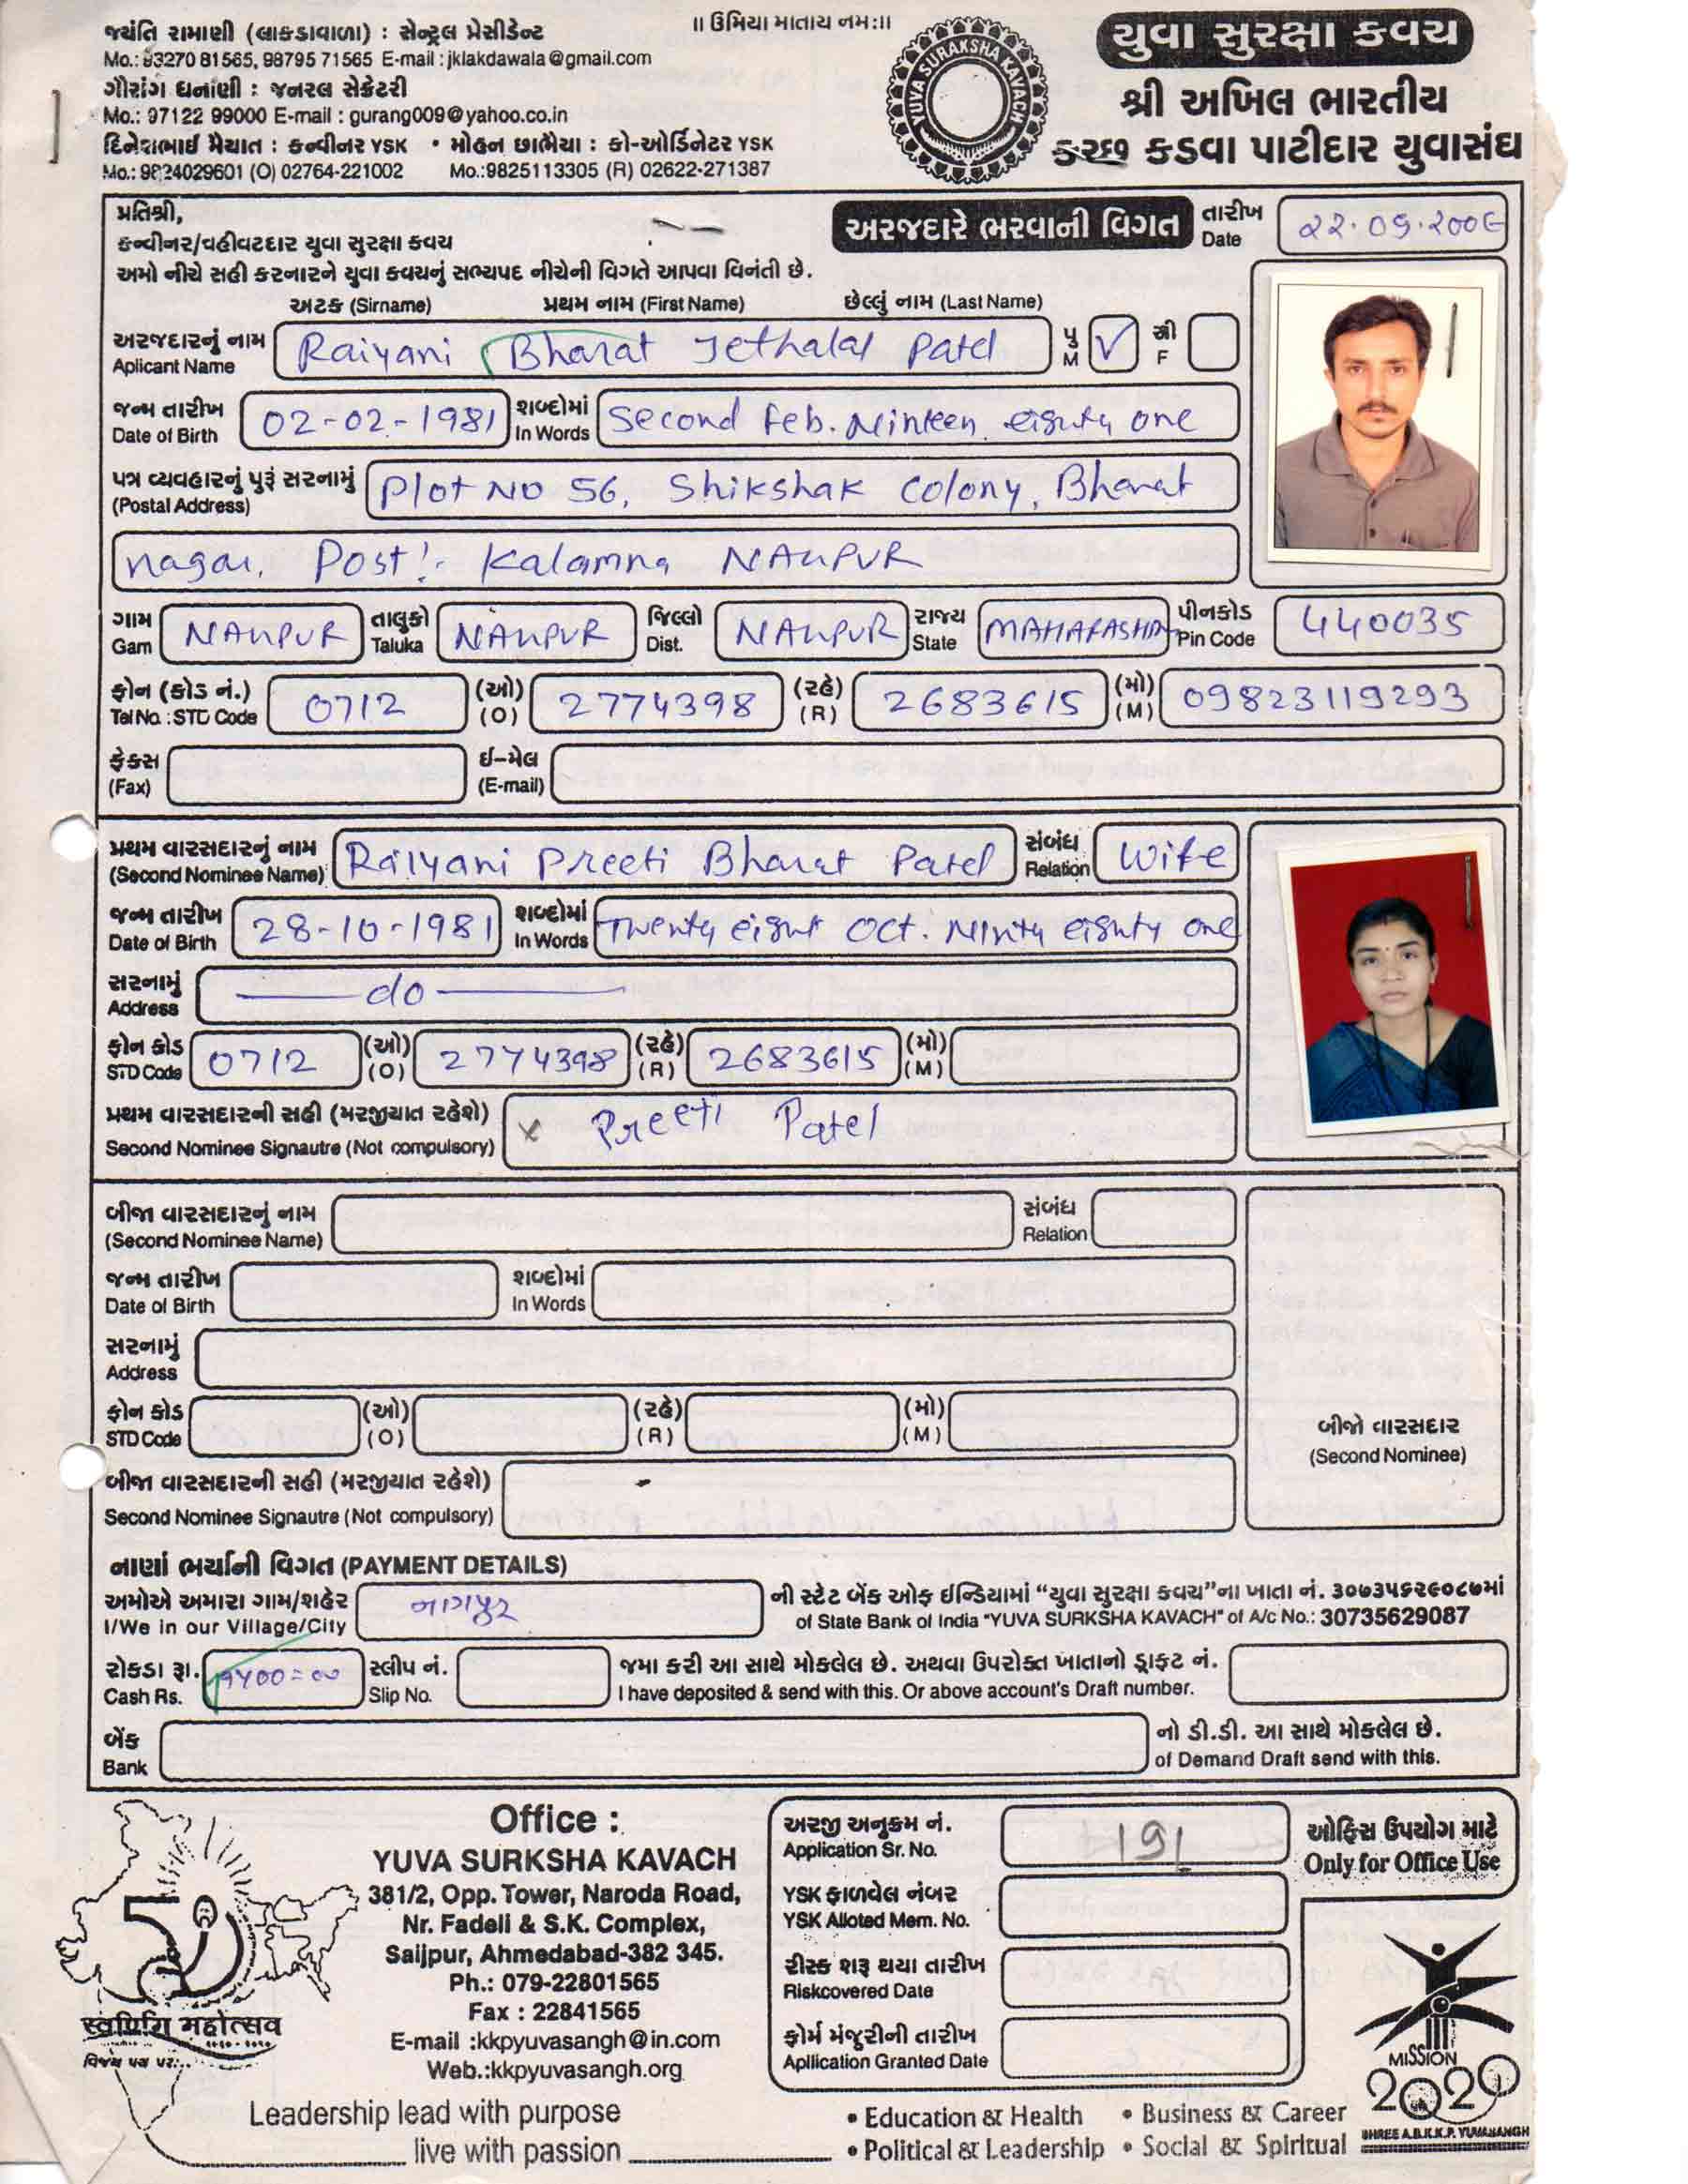 જયંતિ રામાણી (લાકડાવાળા) : સેન્ટ્રલ પ્રેસીડેન્ટ
Mo.: 93270 81565, 98795 71565 E-mail : jklakdawala@gmail.com
ગૌરાંગ ધનાણી : જનરલ સેક્રેટરી
Mo.: 97122 99000 E-mail : gurang009@yahoo.co.in
દિનેશભાઈ મૈયાત : કન્વીનર YSK • મોહન છાભૈયા : કો-ઓર્ડિનેટર YSK
Mo.: 9824029601 (O) 02764-221002 Mo.:9825113305 (R) 02622-271387
॥ ઉમિયા માતાય નમઃ॥
YUVA SURAKSHA KAVACH
યુવા સુરક્ષા કવચ
શ્રી અખિલ ભારતીય
કચ્છ કડવા પાટીદાર યુવાસંઘ
પ્રતિશ્રી,
કન્વીનર/વહીવટદાર યુવા સુરક્ષા કવચ
અરજદારે ભરવાની વિગત
તારીખ Date
અમો નીચે સહી કરનારને યુવા કવચનું સભ્યપદ નીચેની વિગતે આપવા વિનંતી છે.
અટક (Sirname) પ્રથમ નામ (First Name) છેલ્લું નામ (Last Name)
અરજદારનું નામ Aplicant Name Raiyani Bharat Jethalal Patel પુ M ✓ સ્રી F
જન્મ તારીખ Date of Birth 02-02-1981 શબ્દોમાં In Words Second Feb. Ninteen eighty one
પત્ર વ્યવહારનું પુરૂં સરનામું (Postal Address) Plot No 56, Shikshak Colony, Bharat
nagar, Post:- Kalamna NAGPUR
ગામ Gam NAGPUR તાલુકો Taluka NAGPUR જિલ્લો Dist. NAGPUR રાજ્ય State MAHARASHTRA પીનકોડ Pin Code 440035
ફોન (કોડ નં.) Tel No. : STD Code 0712 (ઓ) (O) 2774398 (રહે) (R) 2683615 (મો) (M) 09823119293
ફેક્સ (Fax) ઈ-મેલ (E-mail)
પ્રથમ વારસદારનું નામ (Second Nominee Name) Raiyani Preeti Bharat Patel સંબંધ Relation Wife
જન્મ તારીખ Date of Birth 28-10-1981 શબ્દોમાં In Words Twenty eight Oct. Ninty eighty one
સરનામું Address do
ફોન કોડ STD Code 0712 (ઓ) (O) 2774398 (રહે) (R) 2683615 (મો) (M)
પ્રથમ વારસદારની સહી (મરજીયાત રહેશે) x Preeti Patel
Second Nominee Signautre (Not compulsory)
બીજા વારસદારનું નામ (Second Nominee Name) સંબંધ Relation
જન્મ તારીખ Date of Birth શબ્દોમાં In Words
સરનામું Address
ફોન કોડ STD Code (ઓ) (O) (રહે) (R) (મો) (M)
બીજા વારસદારની સહી (મરજીયાત રહેશે)
Second Nominee Signautre (Not compulsory)
બીજો વારસદાર
(Second Nominee)
નાણાં ભર્યાની વિગત (PAYMENT DETAILS)
અમોએ અમારા ગામ/શહેર નાગપુર ની સ્ટેટ બેંક ઓફ ઈન્ડિયામાં “યુવા સુરક્ષા કવચ”ના ખાતા નં. ૩૦૭૩૫૬૨૯૦૮૭માં
I/We in our Village/City of State Bank of India "YUVA SURKSHA KAVACH" of A/c No.: 30735629087
રોકડા રૂા. સ્લીપ નં. જમા કરી આ સાથે મોકલેલ છે. અથવા ઉપરોક્ત ખાતાનો ડ્રાફટ નં.
Cash Rs. Slip No. I have deposited & send with this. Or above account's Draft number.
બેંક નો ડી.ડી. આ સાથે મોકલેલ છે.
Bank of Demand Draft send with this.
50
स्वर्णिम महोत्सव
વિજય પથ પર...
Office :
YUVA SURKSHA KAVACH
381/2, Opp. Tower, Naroda Road,
Nr. Fadeli & S.K. Complex,
Saijpur, Ahmedabad-382 345.
Ph.: 079-22801565
Fax : 22841565
E-mail :kkpyuvasangh@in.com
Web.:kkpyuvasangh.org
અરજી અનુક્રમ નં. Application Sr. No. 191
YSK ફાળવેલ નંબર YSK Alloted Mem. No.
રીસ્ક શરૂ થયા તારીખ Riskcovered Date
ફોર્મ મંજૂરીની તારીખ Apllication Granted Date
ઓફિસ ઉપયોગ માટે
Only for Office Use
MISSION
2020
SHREE A.B.K.K.P. YUVASANGH
Leadership lead with purpose
live with passion
• Education & Health • Business & Career
• Political & Leadership • Social & Spiritual